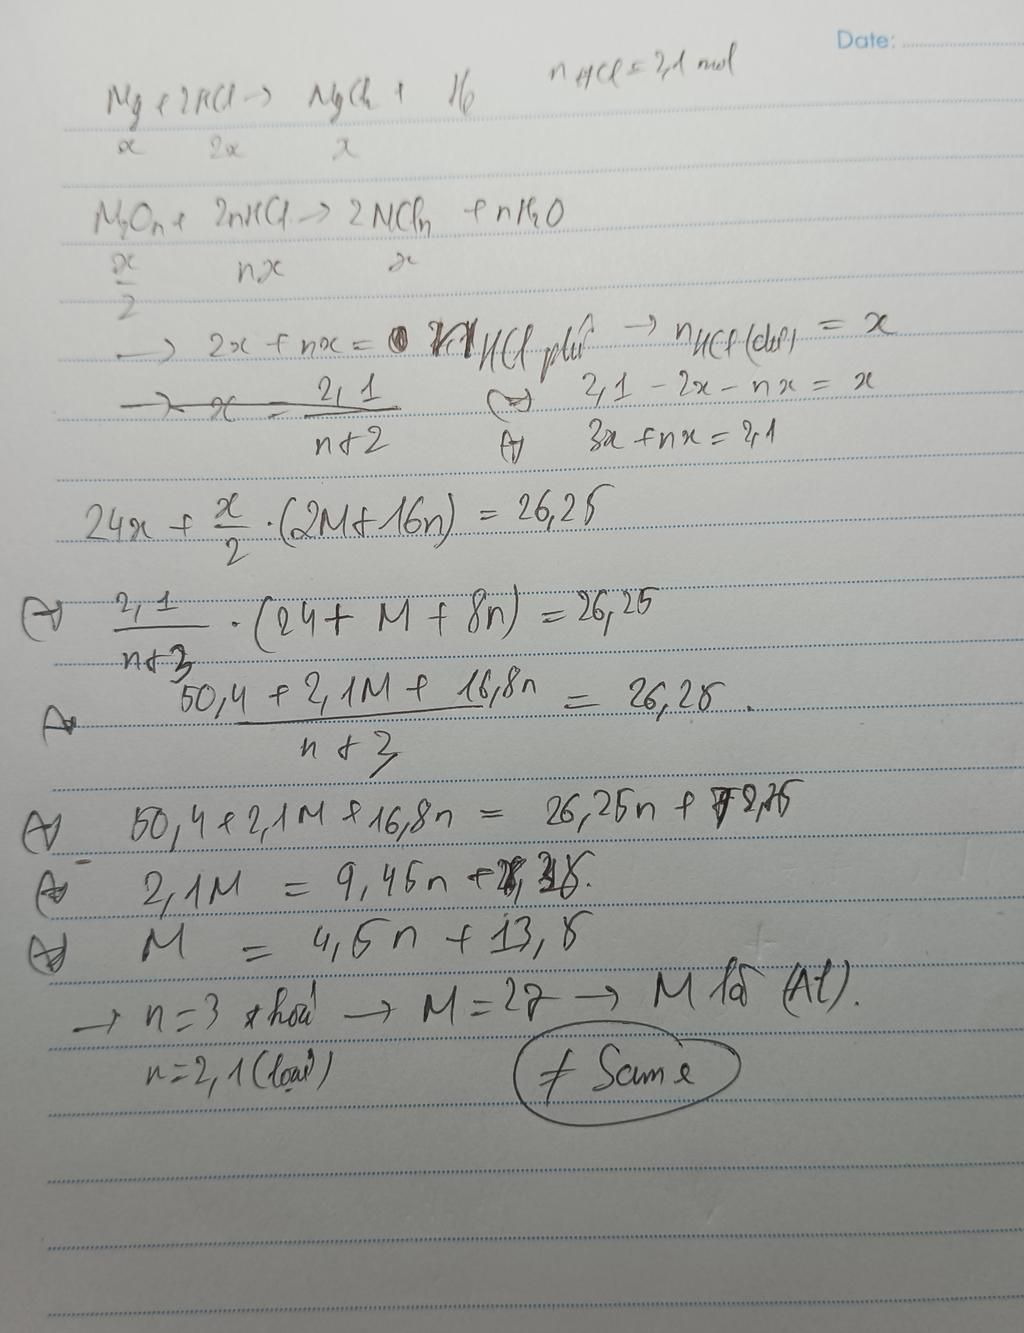 Date:
nHCl = 2,1 mol
Mg + 2HCl → MgCl2 + H2
x 2x x
M2On + 2nHCl → 2MCln + nH2O
x/2 nx x
→ 2x + nx = nHCl pứ → nHCl (dư) = x
→ x = 2,1/(n+2) (⇔) 2,1 - 2x - nx = x
⇔ 3x + nx = 2,1
24x + x/2 . (2M + 16n) = 26,25
⇔ 2,1/(n+3) . (24 + M + 8n) = 26,25
⇔ (50,4 + 2,1M + 16,8n)/(n+3) = 26,25.
⇔ 50,4 + 2,1M + 16,8n = 26,25n + 78,75
⇔ 2,1M = 9,45n + 28,35.
⇔ M = 4,5n + 13,5
→ n=3 thoả → M=27 → M là (Al).
n=2,1 (loại)
≠